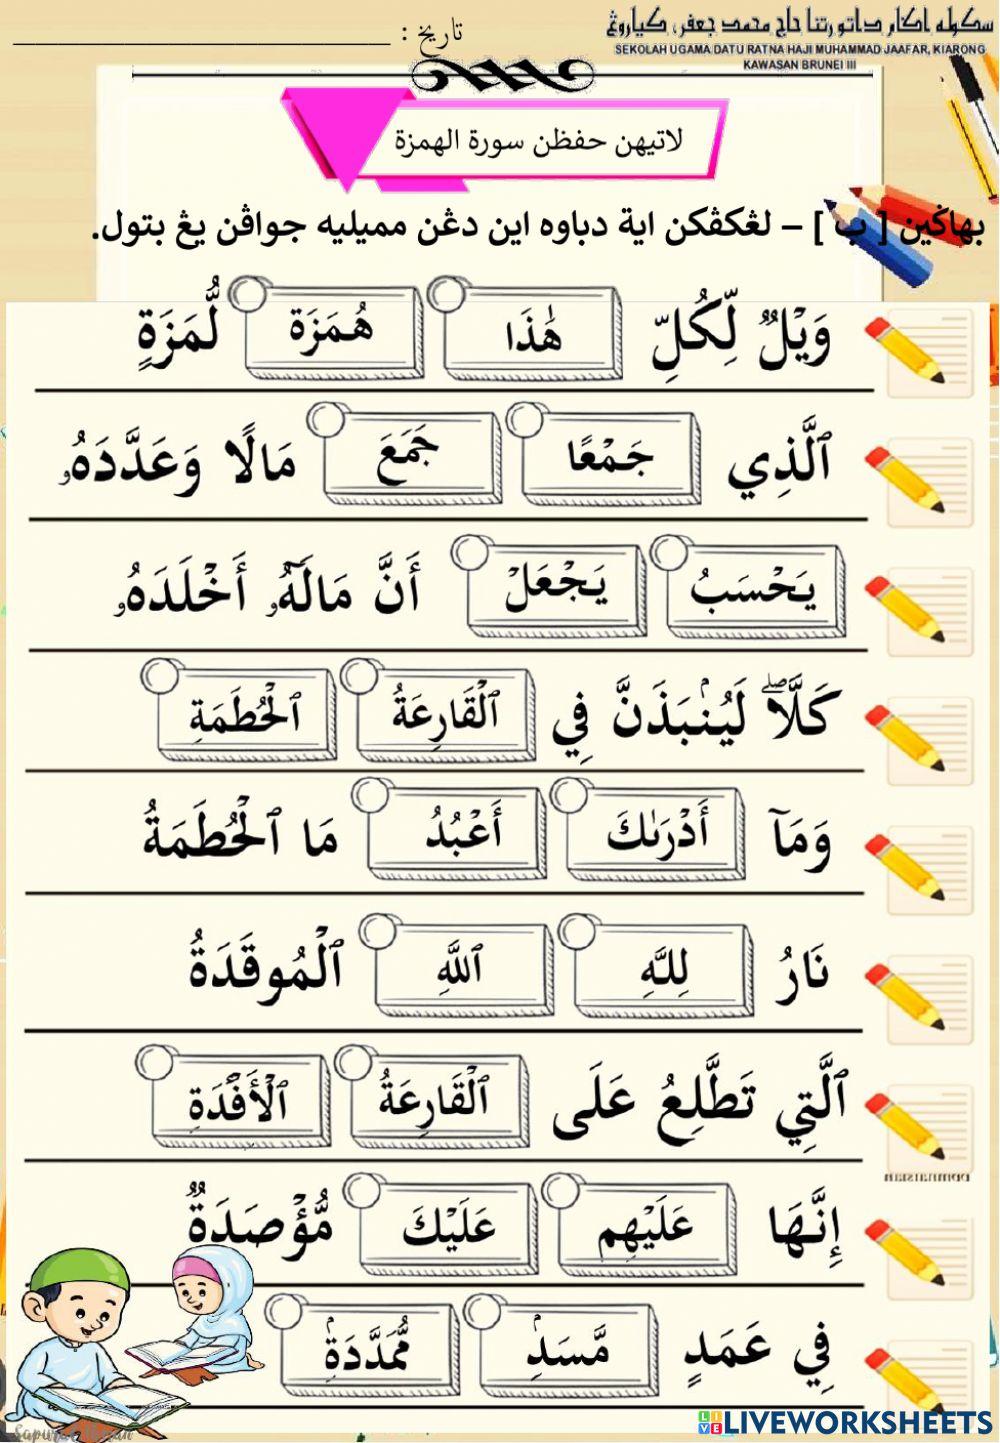 سكوله اڬام داتو رتنا حاج محمد جعفر، كياروڠ
SEKOLAH UGAMA DATU RATNA HAJI MUHAMMAD JAAFAR, KIARONG
KAWASAN BRUNEI III
تاريخ : ____________________
لاتيهن حفظن سورة الهمزة
بهاڬين [ ب ] – لڠكڤكن اية دباوه اين دڠن مميليه جواڤن يڠ بتول.
وَيْلٌ لِّكُلِّ هَٰذَا هُمَزَة لُّمَزَةٍ
ٱلَّذِي جَمْعًا جَمَعَ مَالًا وَعَدَّدَهُۥ
يَحْسَبُ يَجْعَلْ أَنَّ مَالَهُۥٓ أَخْلَدَهُۥ
كَلَّاۖ لَيُنۢبَذَنَّ فِي ٱلْقَارِعَةُ ٱلْحُطَمَةِ
وَمَآ أَدْرَىٰكَ أَعْبُدُ مَا ٱلْحُطَمَةُ
نَارُ لِلهِ ٱللَّهِ ٱلْمُوقَدَةُ
ٱلَّتِي تَطَّلِعُ عَلَى ٱلْقَارِعَةُ ٱلْأَفْدَةِ
إِنَّهَا عَلَيْهِم عَلَيْكَ مُّؤْصَدَةٌ
فِي عَمَدٍ مَّسَدٍۭ مُّمَدَّدَةٍۭ
LIVEWORKSHEETS